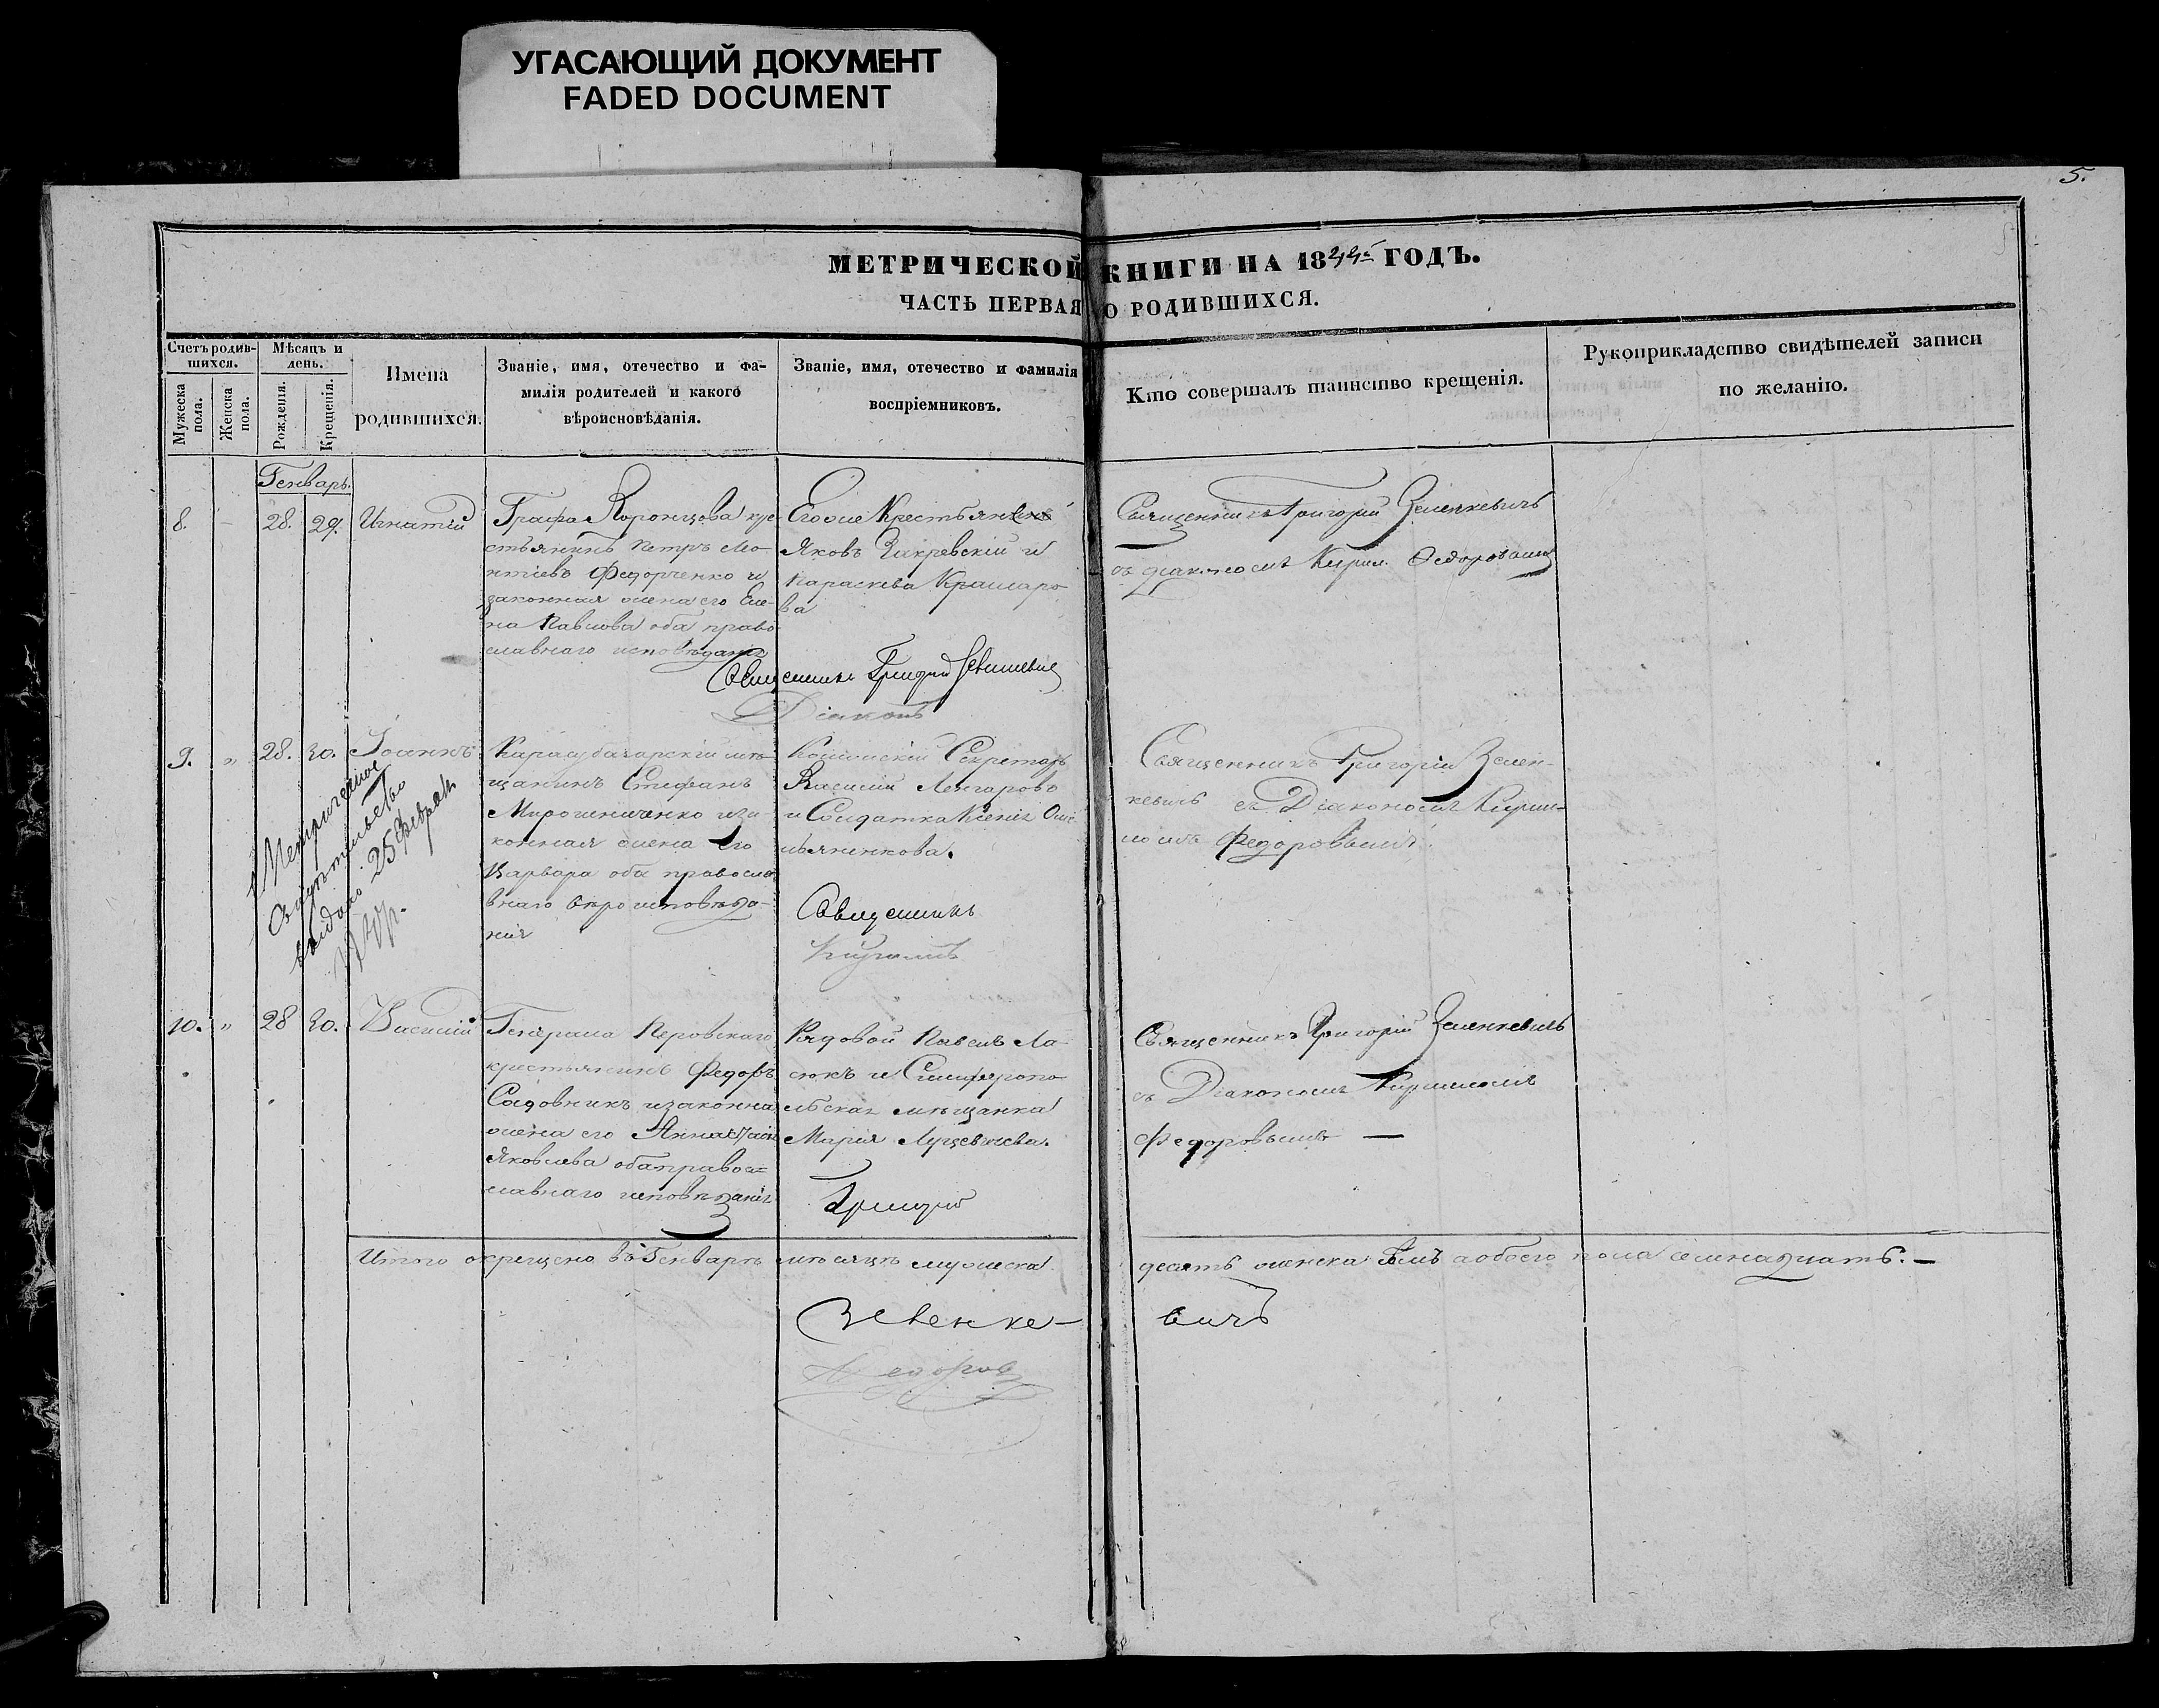 УГАСАЮЩИЙ ДОКУМЕНТ
FADED DOCUMENT
5.
МЕТРИЧЕСКОЙ КНИГИ НА 1844й ГОДЪ.
ЧАСТЬ ПЕРВАЯ О РОДИВШИХСЯ.
Счетъ родив-
шихся.
Мужеска
пола.
Женска
пола.
Мѣсяцъ и
день.
Рожденія.
Крещенія.
Имена
родившихся.
Званіе, имя, отечество и фа-
милія родителей и какого
вѣроисновѣданія.
Званіе, имя, отечество и фамилія
воспріемниковъ.
Кто совершалъ таинство крещенія.
Рукоприкладство свидѣтелей записи
по желанію.
Генварь.
8.
28.
29.
Игнатій
Графа Воронцова кре-
стьянинъ Петръ Лео-
нтіевъ Федорченко и
законная жена его Еле-
на Павлова оба право-
славнаго исповѣданія
Егоже Крестьяне
Яковъ Закревскій и
Параскева Крамаро
ва
Священникъ Григорій Зеленкевичъ
съ діакономъ Кирил. Ѳедоровымъ
Священникъ Григорій Зеленкевичъ
Діаконъ
9.
28.
30.
Іоаннъ
Карасубазарскій мѣ-
щанинъ Стефанъ
Мирошниченко и за-
конная жена его
Варвара оба правосла
внаго вѣроисповѣда-
нія
Секретарь
Василій
и Солдатка Ксенія Оме-
льяненкова.
Священникъ Григорій Зелен-
кевичъ съ Діакономъ Кирил-
ломъ Федоровымъ
Метрическое
свидѣтельство
выдано 25 февраля
Священникъ
Кириллъ
10.
28
30.
Василій
Генерала Перовскаго
крестьянинъ Федоръ
Садовникъ и законна
жена его
Яковлева оба правос=
лавнаго исповѣданія
Рядовой Павелъ Ла-
сюкъ и Симферопо
льская мѣщанка
Марія Луцевичева.
Священникъ Григорій Зеленкевичъ
съ Діакономъ Кирилломъ
Федоровымъ —
Григорій
Итого окрещено въ Генварѣ мѣсяцѣ мужеска десять женска семь а обоего пола семнадцать. —
Зеленке- вичъ
Федоровъ